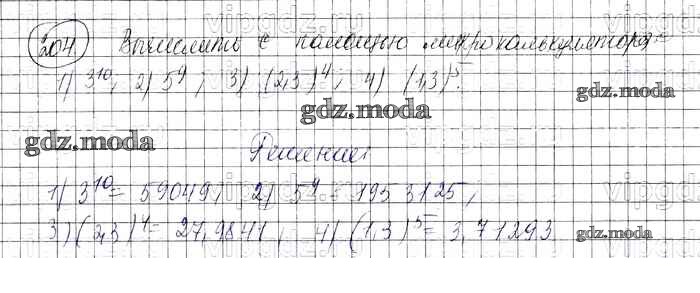 204 Вычислить с помощью микрокалькулятора:
1) 3^10; 2) 5^9; 3) (2,3)^4; 4) (1,3)^5.
Решение:
1) 3^10 = 59049; 2) 5^9 = 1953125;
3) (2,3)^4 = 27,9841; 4) (1,3)^5 = 3,71293
vipgdz.ru
gdz.moda
gdz.moda
gdz.moda
gdz.moda